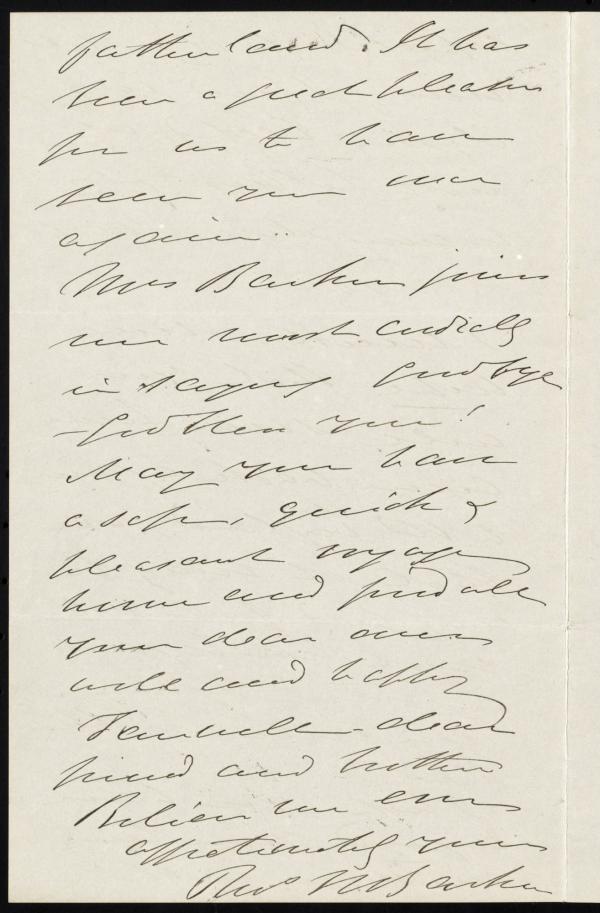 fatherland. It has
been a great pleasure
for us to have
seen you once
again.
Mrs Barker joins
me most cordially
in saying Good bye
- God bless you!
May you have
a safe, quick &
pleasant voyage
home and find all
your dear ones
well and happy
Farewell - dear
friend and brother
Believe me ever
affectionately yours
Thos M Barker